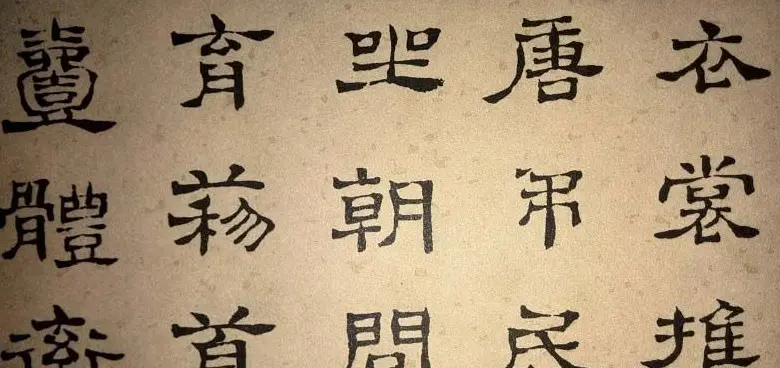 衣裳推
唐弔民
坐朝問
育黎首
壹體率